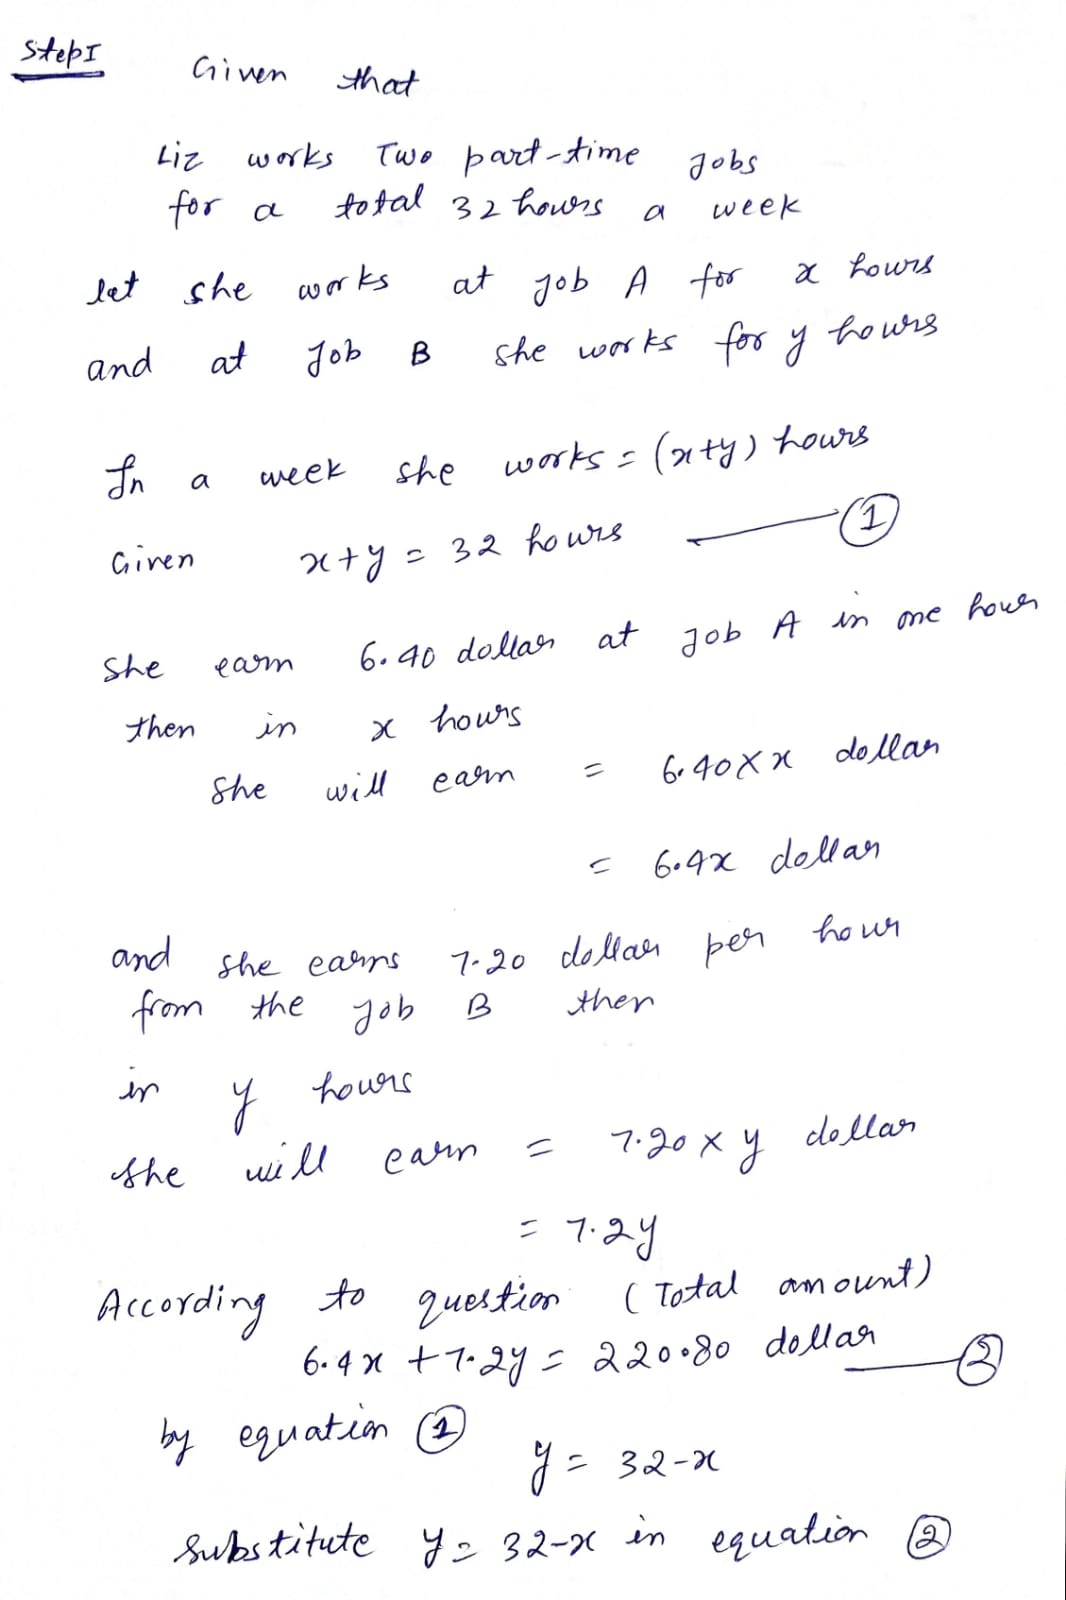 Step I
Given that
Liz works Two part-time Jobs
for a total 32 hours a week
let she works at job A for x hours
and at Job B she works for y hours
In a week she works = (x+y) hours
Given x+y = 32 hours ——— ①
She earn 6.40 dollar at job A in one hour
then in x hours
She will earn = 6.40 × x dollar
= 6.4x dollar
and she earns 7.20 dollar per hour
from the job B then
in y hours
She will earn = 7.20 × y dollar
= 7.2y
According to question (Total amount)
6.4x + 7.2y = 220.80 dollar ——— ②
by equation ①
y = 32-x
Substitute y = 32-x in equation ②